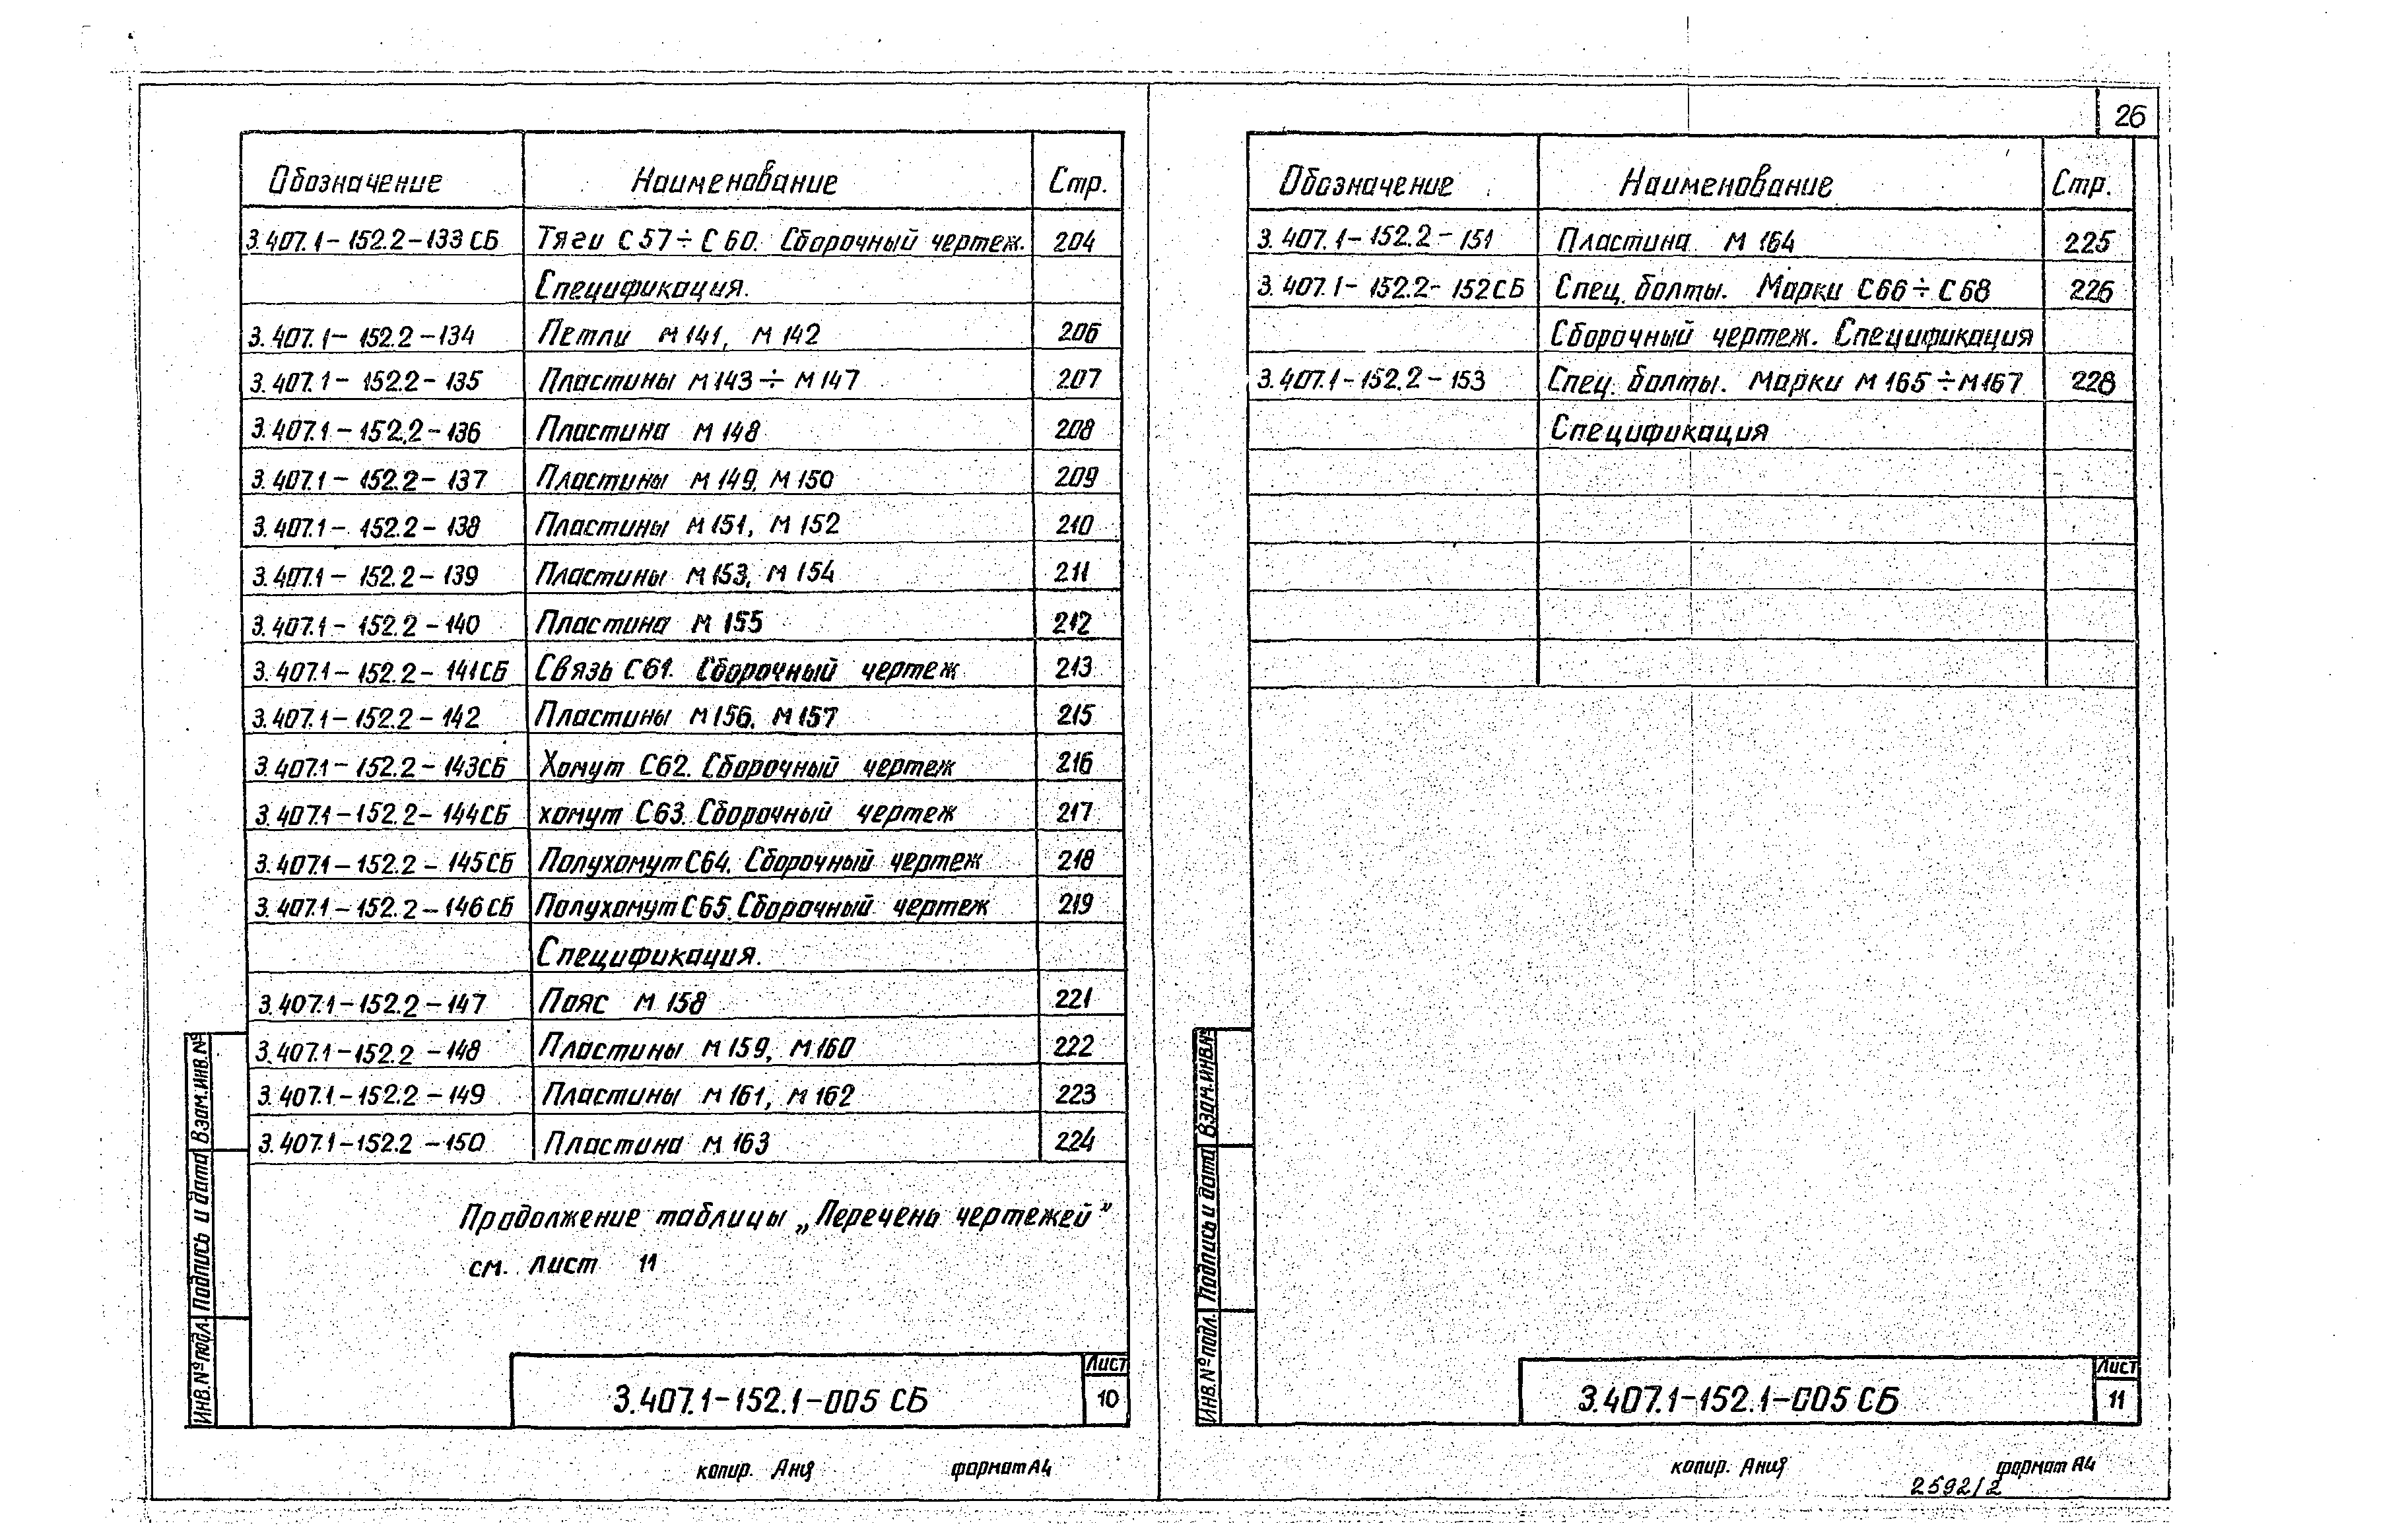 Обозначение Наименование Стр.
3.407.1-152.2-133СБ Тяги С57÷С60. Сборочный чертеж. 204
Спецификация.
3.407.1-152.2-134 Петли М141, М142 206
3.407.1-152.2-135 Пластины М143÷М147 207
3.407.1-152.2-136 Пластина М148 208
3.407.1-152.2-137 Пластины М149, М150 209
3.407.1-152.2-138 Пластины М151, М152 210
3.407.1-152.2-139 Пластины М153, М154 211
3.407.1-152.2-140 Пластина М155 212
3.407.1-152.2-141СБ Связь С61. Сборочный чертеж 213
3.407.1-152.2-142 Пластины М156, М157 215
3.407.1-152.2-143СБ Хомут С62. Сборочный чертеж 216
3.407.1-152.2-144СБ хомут С63. Сборочный чертеж 217
3.407.1-152.2-145СБ Полухомут С64. Сборочный чертеж 218
3.407.1-152.2-146СБ Полухомут С65. Сборочный чертеж 219
Спецификация.
3.407.1-152.2-147 Пояс М158 221
3.407.1-152.2-148 Пластины М159, М160 222
3.407.1-152.2-149 Пластины М161, М162 223
3.407.1-152.2-150 Пластина М163 224
Продолжение таблицы „Перечень чертежей”
см. лист 11
Инв.№подл. Подпись и дата Взам.инв.№
3.407.1-152.1-005 СБ
Лист
10
копир. Аня формат А4
26
Обозначение Наименование Стр.
3.407.1-152.2-151 Пластина М164 225
3.407.1-152.2-152СБ Спец. болты. Марки С66÷С68 226
Сборочный чертеж. Спецификация
3.407.1-152.2-153 Спец. болты. Марки М165÷М167 228
Спецификация
Инв.№подл. Подпись и дата Взам.инв.№
3.407.1-152.1-005 СБ
Лист
11
копир. Аня формат А4
2592/2